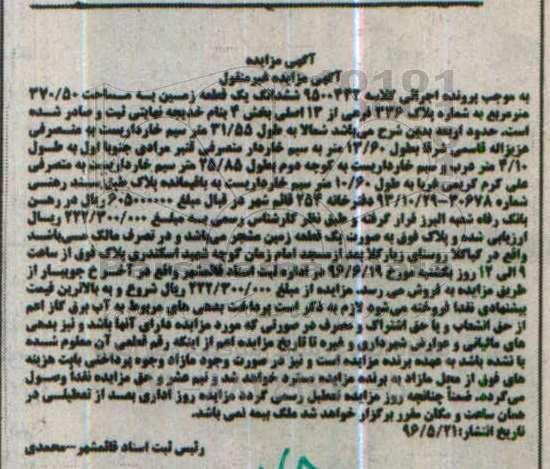 آگهی مزایده
آگهی مزایده غیرمنقول
به موجب پرونده اجرائی کلاسه ۹۵۰۰۲۴۲ ششدانگ یک قطعه زمین به مساحت ۳۷۰/۵۰
مترمربع به شماره پلاک ۲۳۶ فرعی از ۱۳ اصلی بخش ۴ بنام خدیجه نهایتی ثبت و صادر شده
است. حدود اربعه بدین شرح می‌باشد شمالا به طول ۳۱/۵۵ متر سیم خارداریست به متصرفی
عزیزاله قاسمی شرقا بطول ۱۳/۶۰ متر به سیم خاردار متصرفی قنبر مرادی جنوبا اول به طول
۴/۱۰ متر درب و سیم خارداریست به کوچه دوم بطول ۲۵/۸۵ متر سیم خارداریست به متصرفی
علی کرم کریمی غربا به طول ۱۰/۶۰ متر سیم خارداریست به باقیمانده پلاک طبق سند رهنی
شماره ۳۰۶۷۸-۹۳/۱۰/۲۹ دفترخانه ۲۵۴ قائم شهر در قبال مبلغ ۶۰۵۰۰۰۰۰۰ ریال در رهن
بانک رفاه شعبه البرز قرار گرفته و طبق نظر کارشناس رسمی به مبلغ ۲۲۲/۳۰۰/۰۰۰ ریال
ارزیابی شده و پلاک فوق به صورت یک قطعه زمین مشجر می‌باشد و در تصرف مالک می‌باشد
واقع در کیاکلا روستای زیارکلا بعد از مسجد امام زمان کوچه شهید اسکندری پلاک فوق از ساعت
۹ الی ۱۲ روز یکشنبه مورخ ۹۶/۶/۱۹ در اداره ثبت اسناد قائمشهر واقع در آخر خ جویبار از
طریق مزایده به فروش می رسد. مزایده از مبلغ ۲۲۲/۳۰۰/۰۰۰ ریال شروع و به بالاترین قیمت
پیشنهادی نقدا فروخته می‌شود لازم به ذکر است پرداخت بدهی های مربوط به آب برق گاز اعم
از حق انشعاب و یا حق اشتراک و مصرف در صورتی که مورد مزایده دارای آنها باشد و نیز بدهی
های مالیاتی و عوارض شهرداری و غیره تا تاریخ مزایده اعم از اینکه رقم قطعی آن معلوم شده
یا نشده باشد به عهده برنده مزایده است و نیز در صورت وجود مازاد وجوه پرداختی بابت هزینه
های فوق از محل مازاد به برنده مزایده مسترد خواهد شد و نیم عشر و حق مزایده نقدا وصول
می‌گردد. ضمناً چنانچه روز مزایده تعطیل رسمی گردد مزایده روز اداری بعد از تعطیلی در
همان ساعت و مکان مقرر برگزار خواهد شد ملک بیمه نمی باشد.
تاریخ انتشار: ۹۶/۵/۲۱
رئیس ثبت اسناد قائمشهر-محمدی